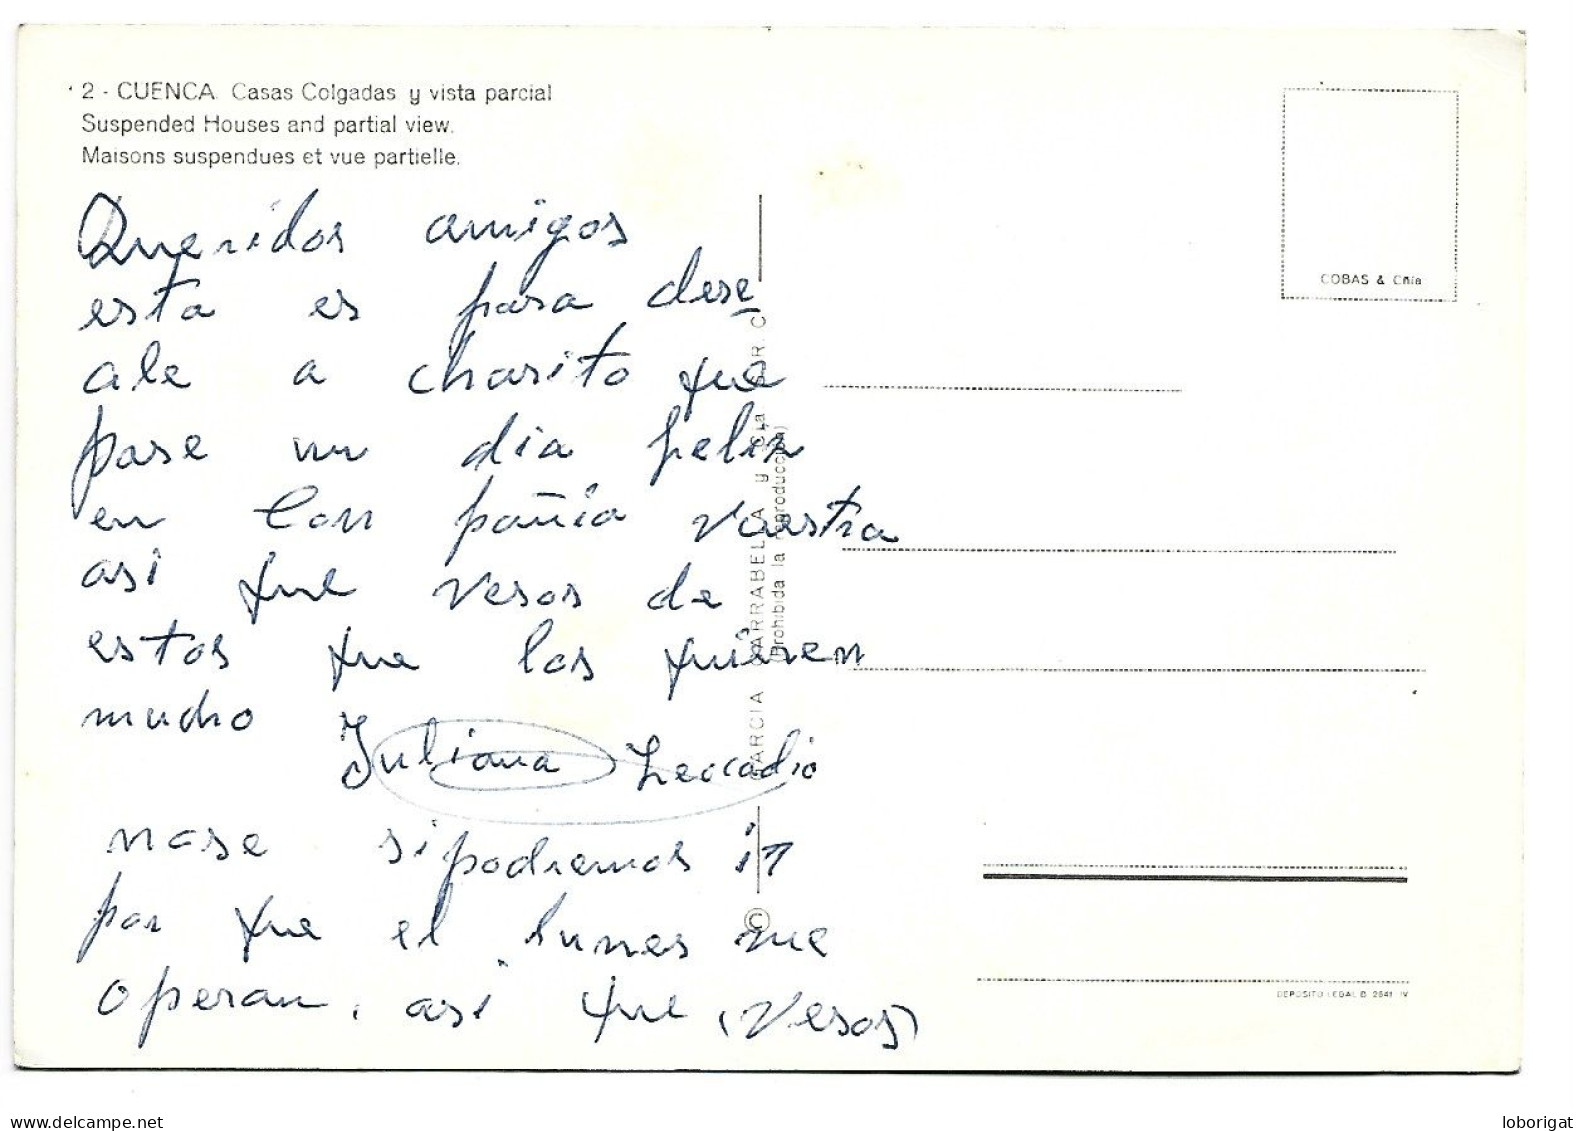 2 - CUENCA. Casas Colgadas y vista parcial
Suspended Houses and partial view.
Maisons suspendues et vue partielle.
COBAS & Cñia
Queridos amigos
esta es para dese
ale a charito que
pase un dia feliz
en Con pañia vuestra
asi que vesos de
estos que los quieren
mucho Juliana Leocadio
nose si podremos ir
por que el lunes me
operan, asi que (vesos)
© GARCIA GARRABELLA y Cia
(Prohibida la reproducción)
DEPOSITO LEGAL B. 2641 IV
loborigat